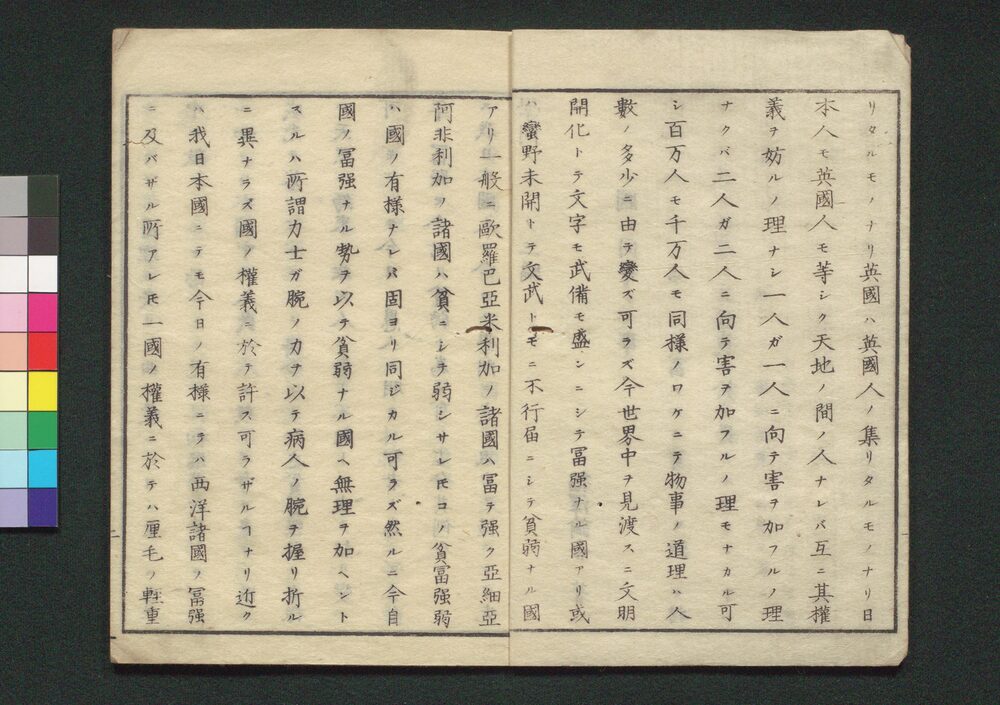 リタルモノナリ英國ハ英國人ノ集リタルモノナリ日
本人モ英國人モ等シク天地ノ間ノ人ナレバ互ニ其權
義ヲ妨ルノ理ナシ一人ガ一人ニ向テ害ヲ加フルノ理
ナクバ二人ガ二人ニ向テ害ヲ加フルノ理モナカル可
シ百万人モ千万人モ同様ノワケニテ物事ノ道理ハ人
數ノ多少ニ由テ變ズ可ラズ今世界中ヲ見渡スニ文明
開化トテ文字モ武備モ盛ンニシテ冨强ナル國アリ或
ハ蠻野未開トテ文武トモニ不行届ニシテ貧弱ナル國
アリ一般ニ歐羅巴亞米利加ノ諸國ハ冨テ强ク亞細亞
阿非利加ノ諸國ハ貧ニシテ弱シサレ𪜈コノ貧冨强弱
ハ國ノ有様ナレバ固ヨリ同ジカル可ラズ然ルニ今自
國ノ冨强ナル勢ヲ以テ貧弱ナル國ヘ無理ヲ加ヘント
スルハ所謂力士ガ腕ノ力ヲ以テ病人ノ腕ヲ握リ折ル
ニ異ナラズ國ノ權義ニ於テ許ス可ラザルヿナリ近ク
ハ我日本國ニテモ今日ノ有様ニテハ西洋諸國ノ冨强
ニ及バザル所アレ𪜈一國ノ權義ニ於テハ厘毛ノ輕重